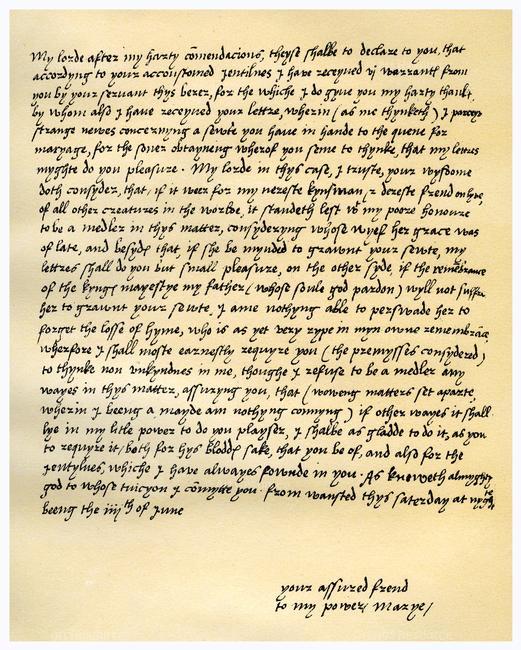 My lorde after my harty cōmendacions, theyse shalbe to declare to you, that
accordyng to your accoustomed Jentilnes J have receyved vj warrantꝭ from
you by your servant thys berer, for the whiche J do gyve you my harty thankꝭ,
by whom also J have receyved your lettre, wherin (as me thynketh) J parceyv
strange newes concernyng a sewte you have in hande to the quene for
maryage, for the soner obtayneng wherof you seme to thynke, that my lettres
myghte do you pleasure. My lorde in thys case, J truste, your wysdome
doth consyder, that, if it wer for my nereste kynsman, & dereste frend on lyve,
of all other creatures in the worlde, it standeth lest wt my poore honoure
to be a medler in thys matter, consyderyng whose wyef her grace was
of late, and besydꝭ that if she be mynded to grawnt your sewte, my
lettres shall do you but small pleasure, on the other syde, if the remēbrance
of the kyngꝭ mayestye my father (whose soule god pardon) wyll not suffre
her to grawnt your sewte, J ame nothyng able to perswade her to
forget the losse of hyme, who is as yet very rype in myn owne remembrāce,
wherfore J shall moste earnestly requyre you (the premysses consydered)
to thynke non unkyndnes in me, thoughe J refuse to be a medler any
wayes in thys matter, assuryng you, that (woweng matters set aparte,
wherin J beeng a mayde am nothyng connyng) if other wayes it shall
lye in my litle power to do you playser, J shalbe as gladde to do it, as you
to requyre it, both for hys bloddꝭ sake, that you be of, and also for the
Jentylnes, whiche J have alwayes fownde in you. As knoweth almyghty
god to whose tuicyon J cōmytte you. from wansted thys saterday at nyght
beeng the iiijth of June
your assured frend
to my power, Marye/